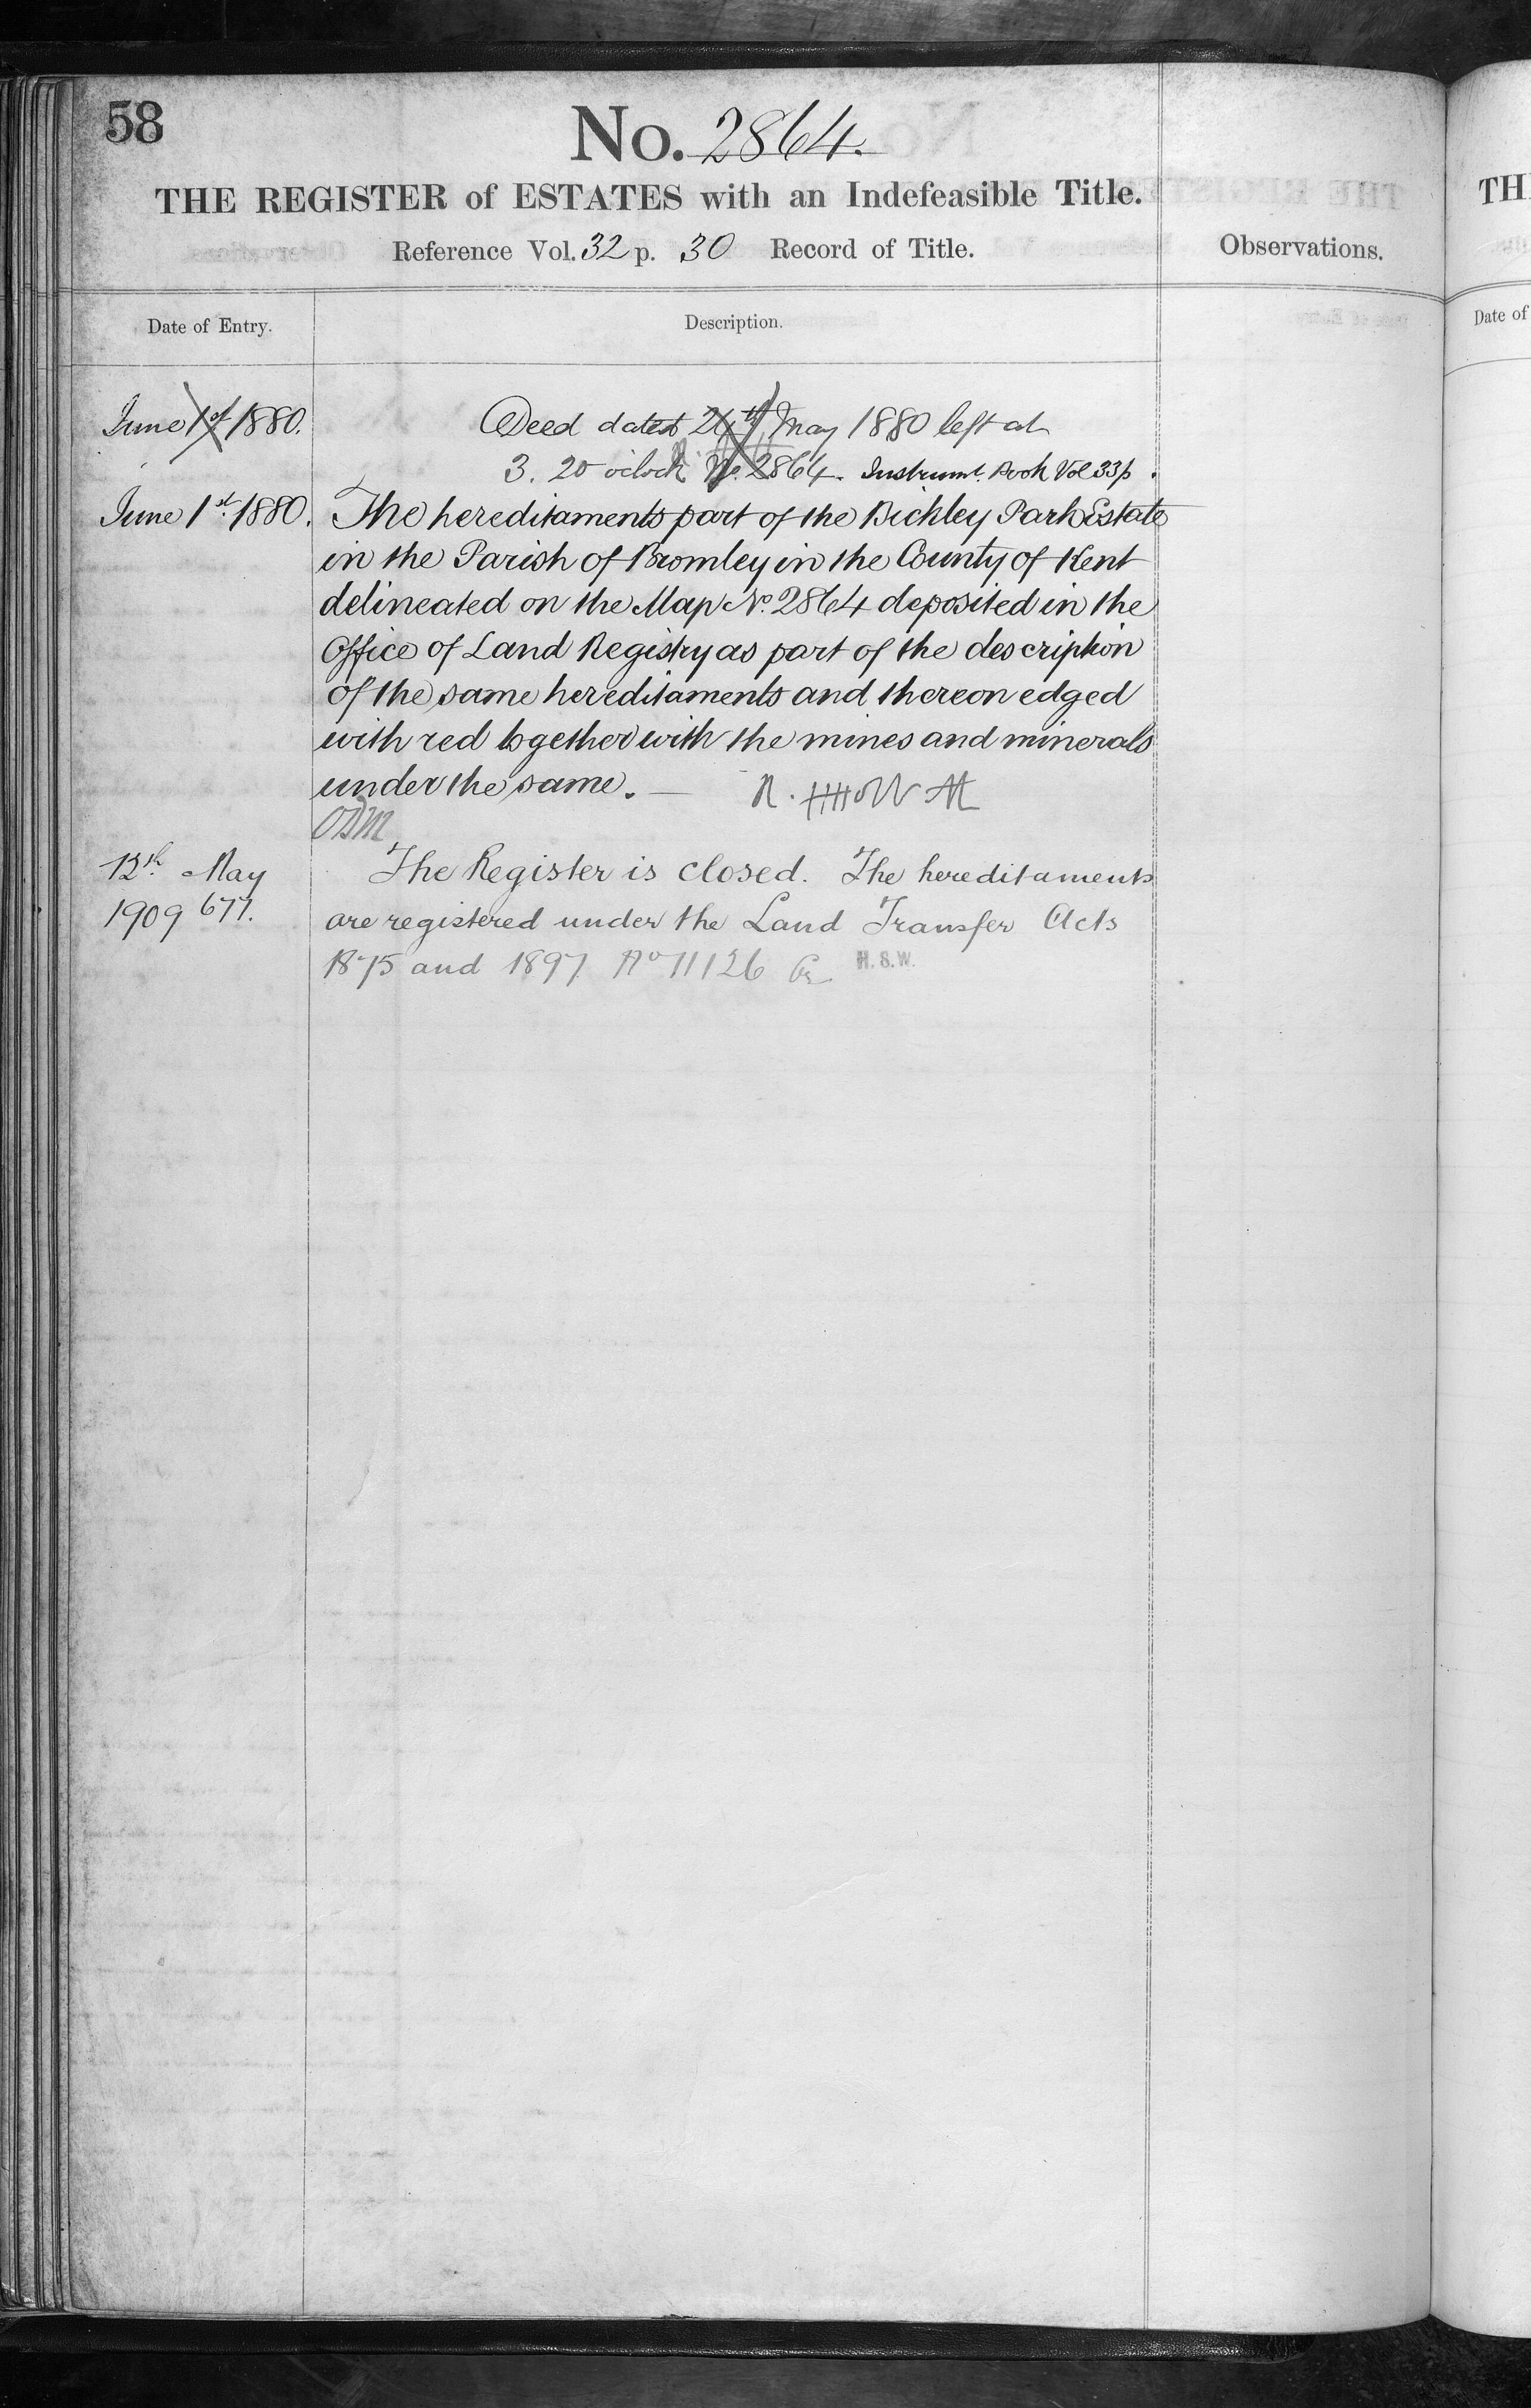 58
No. 2864.
THE REGISTER of ESTATES with an Indefeasible Title.
Reference Vol. 32 p. 30 Record of Title.
Observations.
Date of Entry.
Description.
June 1st 1880.
Deed dated May 1880 left at
3. 20 o'clock No. 2864. Instrumt. Book Vol 33 p .
June 1st. 1880.
The hereditaments part of the Bickley Park Estate
in the Parish of Bromley in the County of Kent
delineated on the Map No. 2864 deposited in the
Office of Land Registry as part of the description
of the same hereditaments and thereon edged
with red together with the mines and minerals
under the same. —
12th May
1909 677.
The Register is closed. The hereditaments
are registered under the Land Transfer Acts
1875 and 1897. No 11126
H.S.W.
TH
Date of